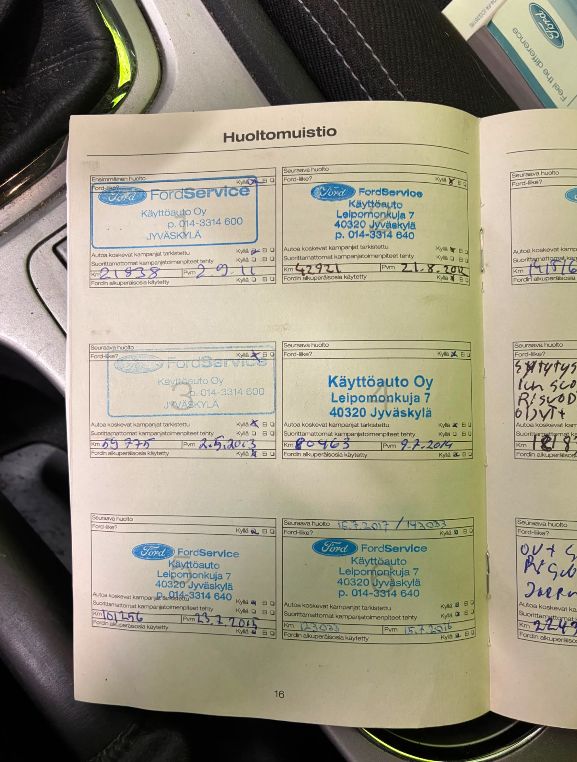 Ford
Feel the difference
Huoltomuistio
Ensimmäinen huolto
Ford-liike? Kyllä Ei
Ford FordService
Käyttöauto Oy
p. 014-3314 600
JYVÄSKYLÄ
Autoa koskevat kampanjat tarkistettu Kyllä Ei
Suorittamattomat kampanjatoimenpiteet tehty Kyllä Ei
Km 21938 Pvm 2.9.11
Fordin alkuperäisosia käytetty Kyllä Ei
Seuraava huolto
Ford-liike? Kyllä Ei
Ford FordService
Käyttöauto Oy
Leipomonkuja 7
40320 Jyväskylä
p. 014-3314 640
Autoa koskevat kampanjat tarkistettu Kyllä Ei
Suorittamattomat kampanjatoimenpiteet tehty Kyllä Ei
Km 42921 Pvm 21.8.2012
Fordin alkuperäisosia käytetty Kyllä Ei
Seuraava huolto
Ford-liike? Kyllä Ei
Ford FordService
3
p. 014-3314 600
JYVÄSKYLÄ
Autoa koskevat kampanjat tarkistettu Kyllä Ei
Suorittamattomat kampanjatoimenpiteet tehty Kyllä Ei
Km 59775 Pvm 2.5.2013
Fordin alkuperäisosia käytetty Kyllä Ei
Seuraava huolto
Ford-liike? Kyllä Ei
4
Käyttöauto Oy
Leipomonkuja 7
40320 Jyväskylä
Autoa koskevat kampanjat tarkistettu Kyllä Ei
Suorittamattomat kampanjatoimenpiteet tehty Kyllä Ei
Km 80463 Pvm 9.7.2014
Fordin alkuperäisosia käytetty Kyllä Ei
Seuraava huolto
Ford-liike? Kyllä Ei
Ford FordService
Käyttöauto Oy
Leipomonkuja 7
40320 Jyväskylä
p. 014-3314 640
Autoa koskevat kampanjat tarkistettu Kyllä Ei
Suorittamattomat kampanjatoimenpiteet tehty Kyllä Ei
Km 101296 Pvm 23.7.2015
Fordin alkuperäisosia käytetty Kyllä Ei
Seuraava huolto
Ford-liike? Kyllä Ei
Ford FordService
Käyttöauto Oy
Leipomonkuja 7
40320 Jyväskylä
p. 014-3314 640
Autoa koskevat kampanjat tarkistettu Kyllä Ei
Suorittamattomat kampanjatoimenpiteet tehty Kyllä Ei
Km Pvm 15.7.2016
Fordin alkuperäisosia käytetty Kyllä Ei
16
Seuraava huolto
Ford-liike?
Autoa koskevat
Suorittamattomat kam
Km
Fordin alkuperäisosia
Seuraava huolto
Ford-liike?
Autoa koskevat kam
Suorittamattomat kam
Km
Fordin alkuperäisosia
Seuraava huolto
Ford-liike?
Km
Fordin alkuperäisosia